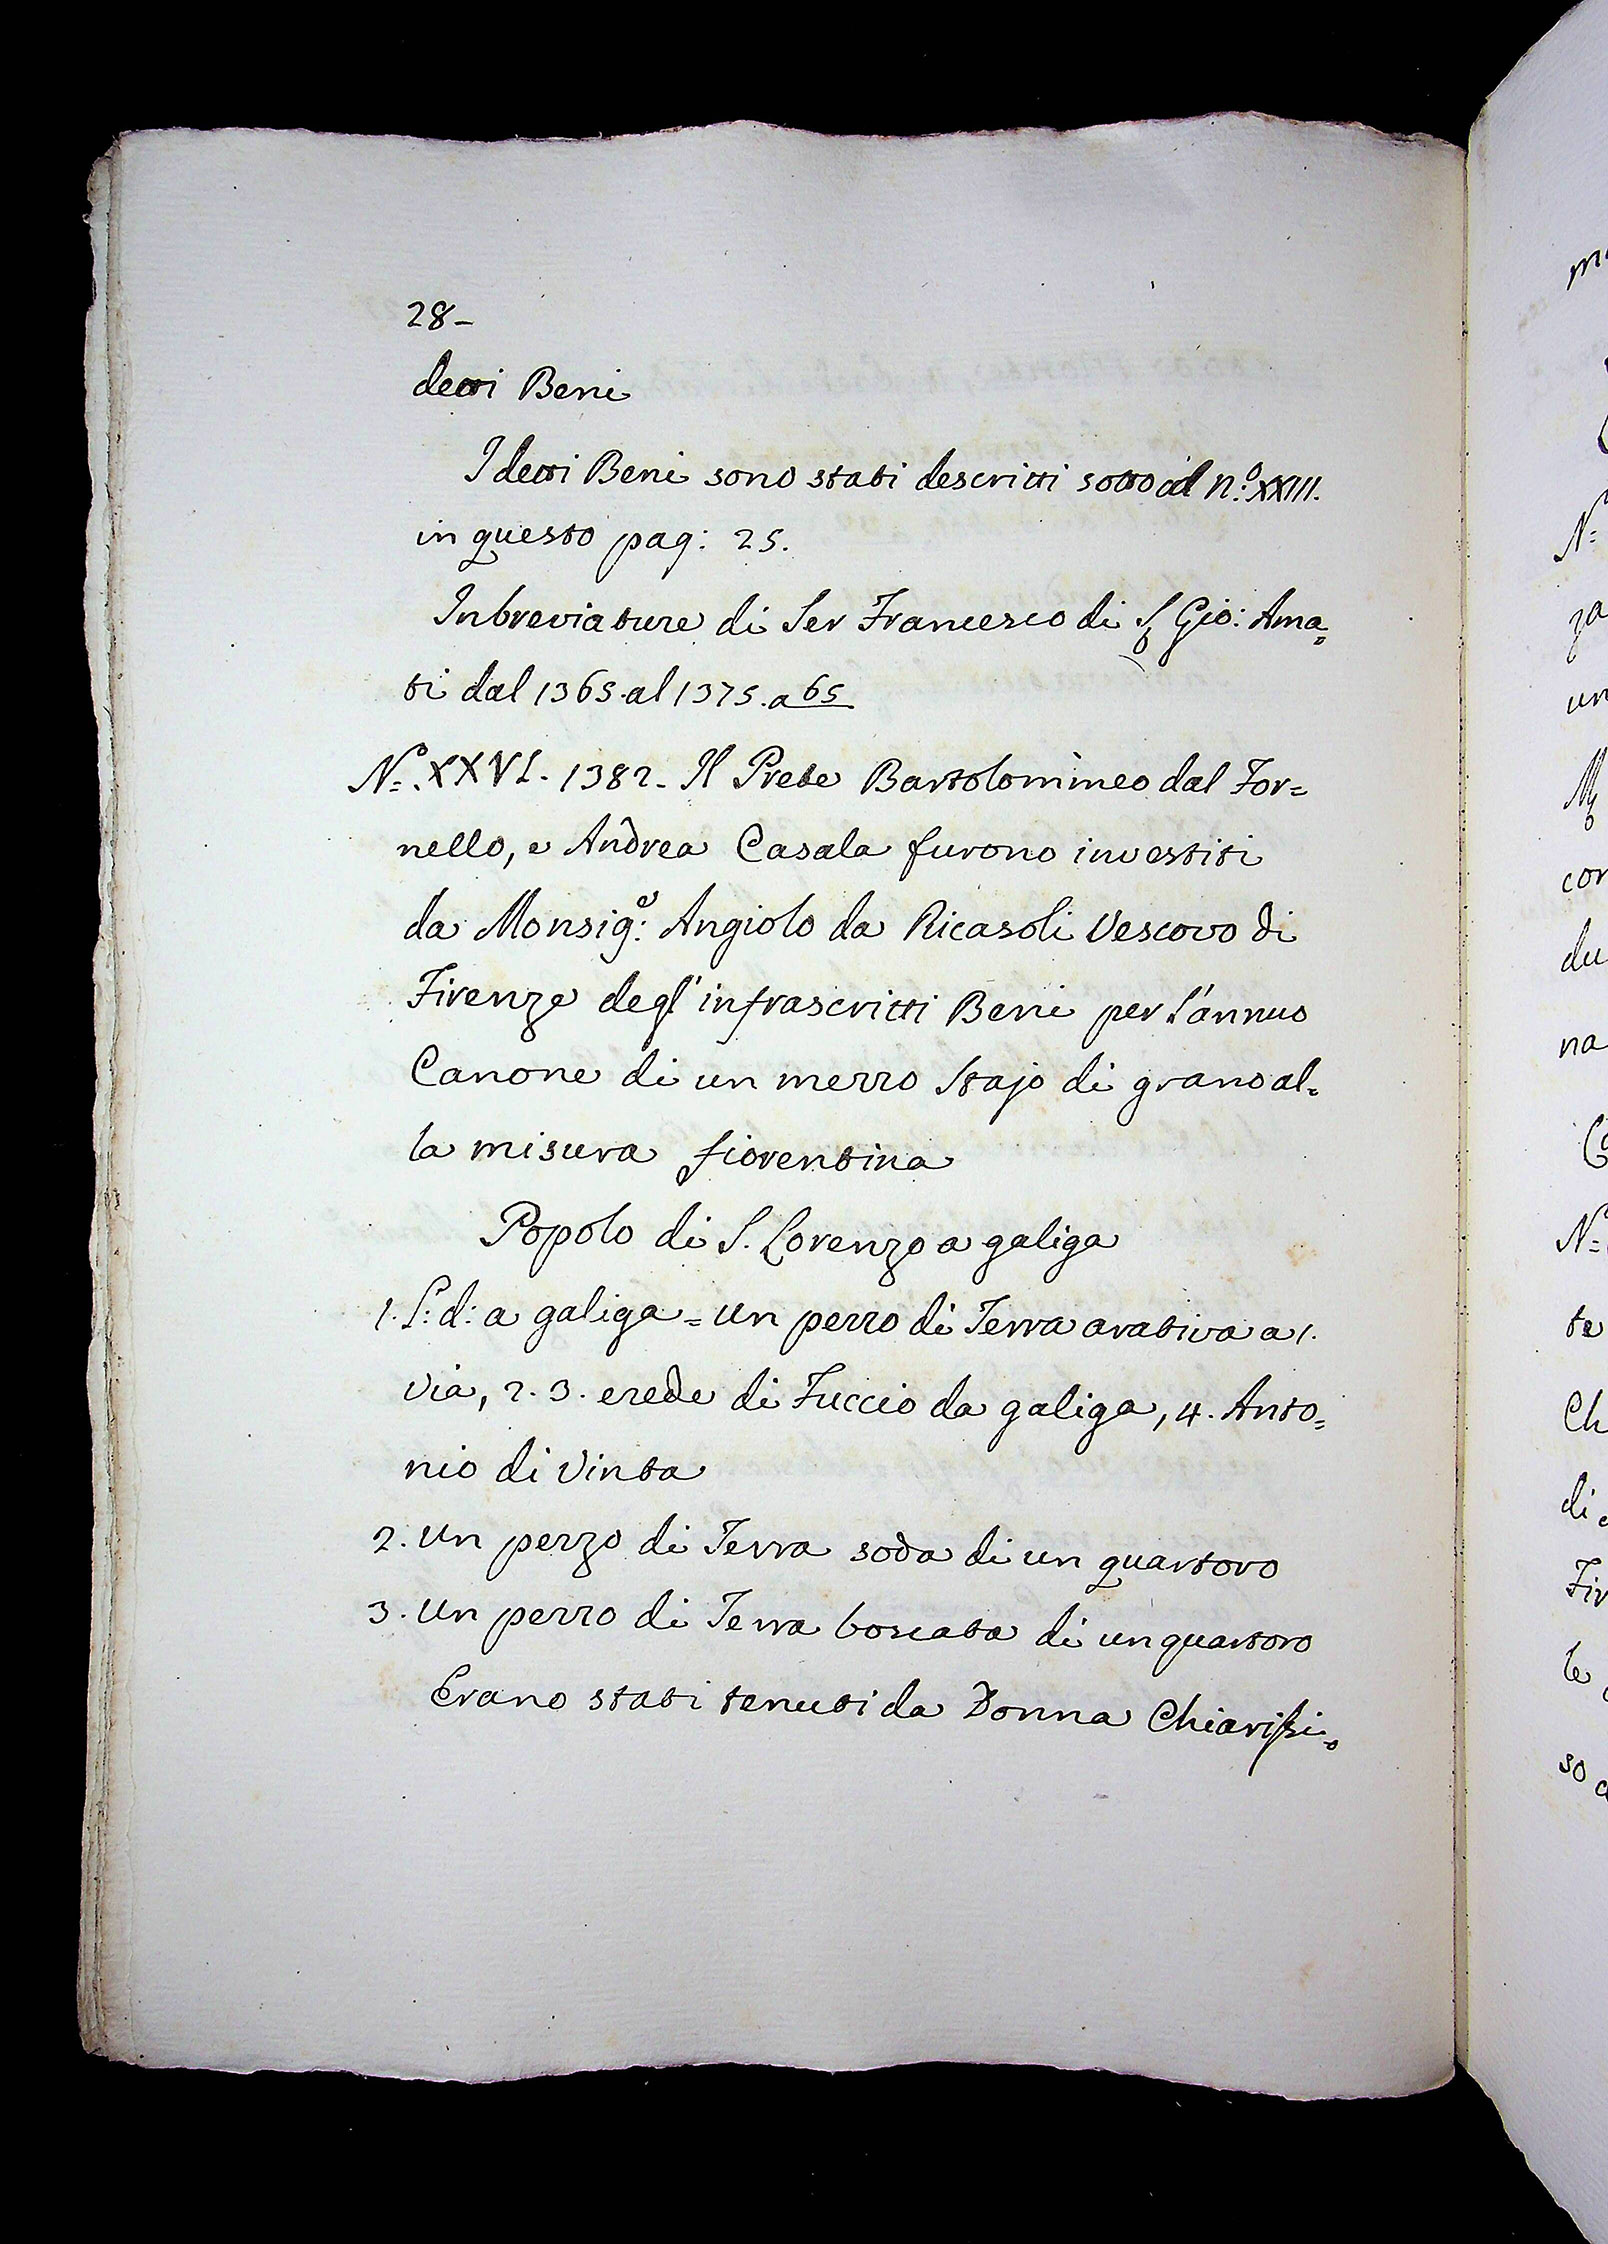 28-
detti Beni
I detti Beni sono stati descritti sotto il N.o XXIII.
in questo pag: 25.
Inbreviature di Ser Francesco di S. Gio: Ama=
ti dal 1365. al 1375. a 65
No. XXVI. 1382. Il Prete Bartolommeo dal For=
nello, e Andrea Casala furono investiti
da Monsig.e: Angiolo da Ricasoli Vescovo di
Firenze degl'infrascritti Beni per l'annuo
Canone di un mezzo Stajo di grano al=
la misura fiorentina
Popolo di S. Lorenzo a galiga
1. L: d: a galiga = un pezzo di Terra arativa a 1.
via, 2. 3. erede di Fuccio da galiga, 4. Anto=
nio di Vinta
2. un pezzo di Terra soda di un quartoro
3. un pezzo di Terra boscata di un quartoro
Erano stati tenuti da Donna Chiarissi=
m
N=
za
un
M
con
du
na
N=
te
Ch
di
Fir
le
so